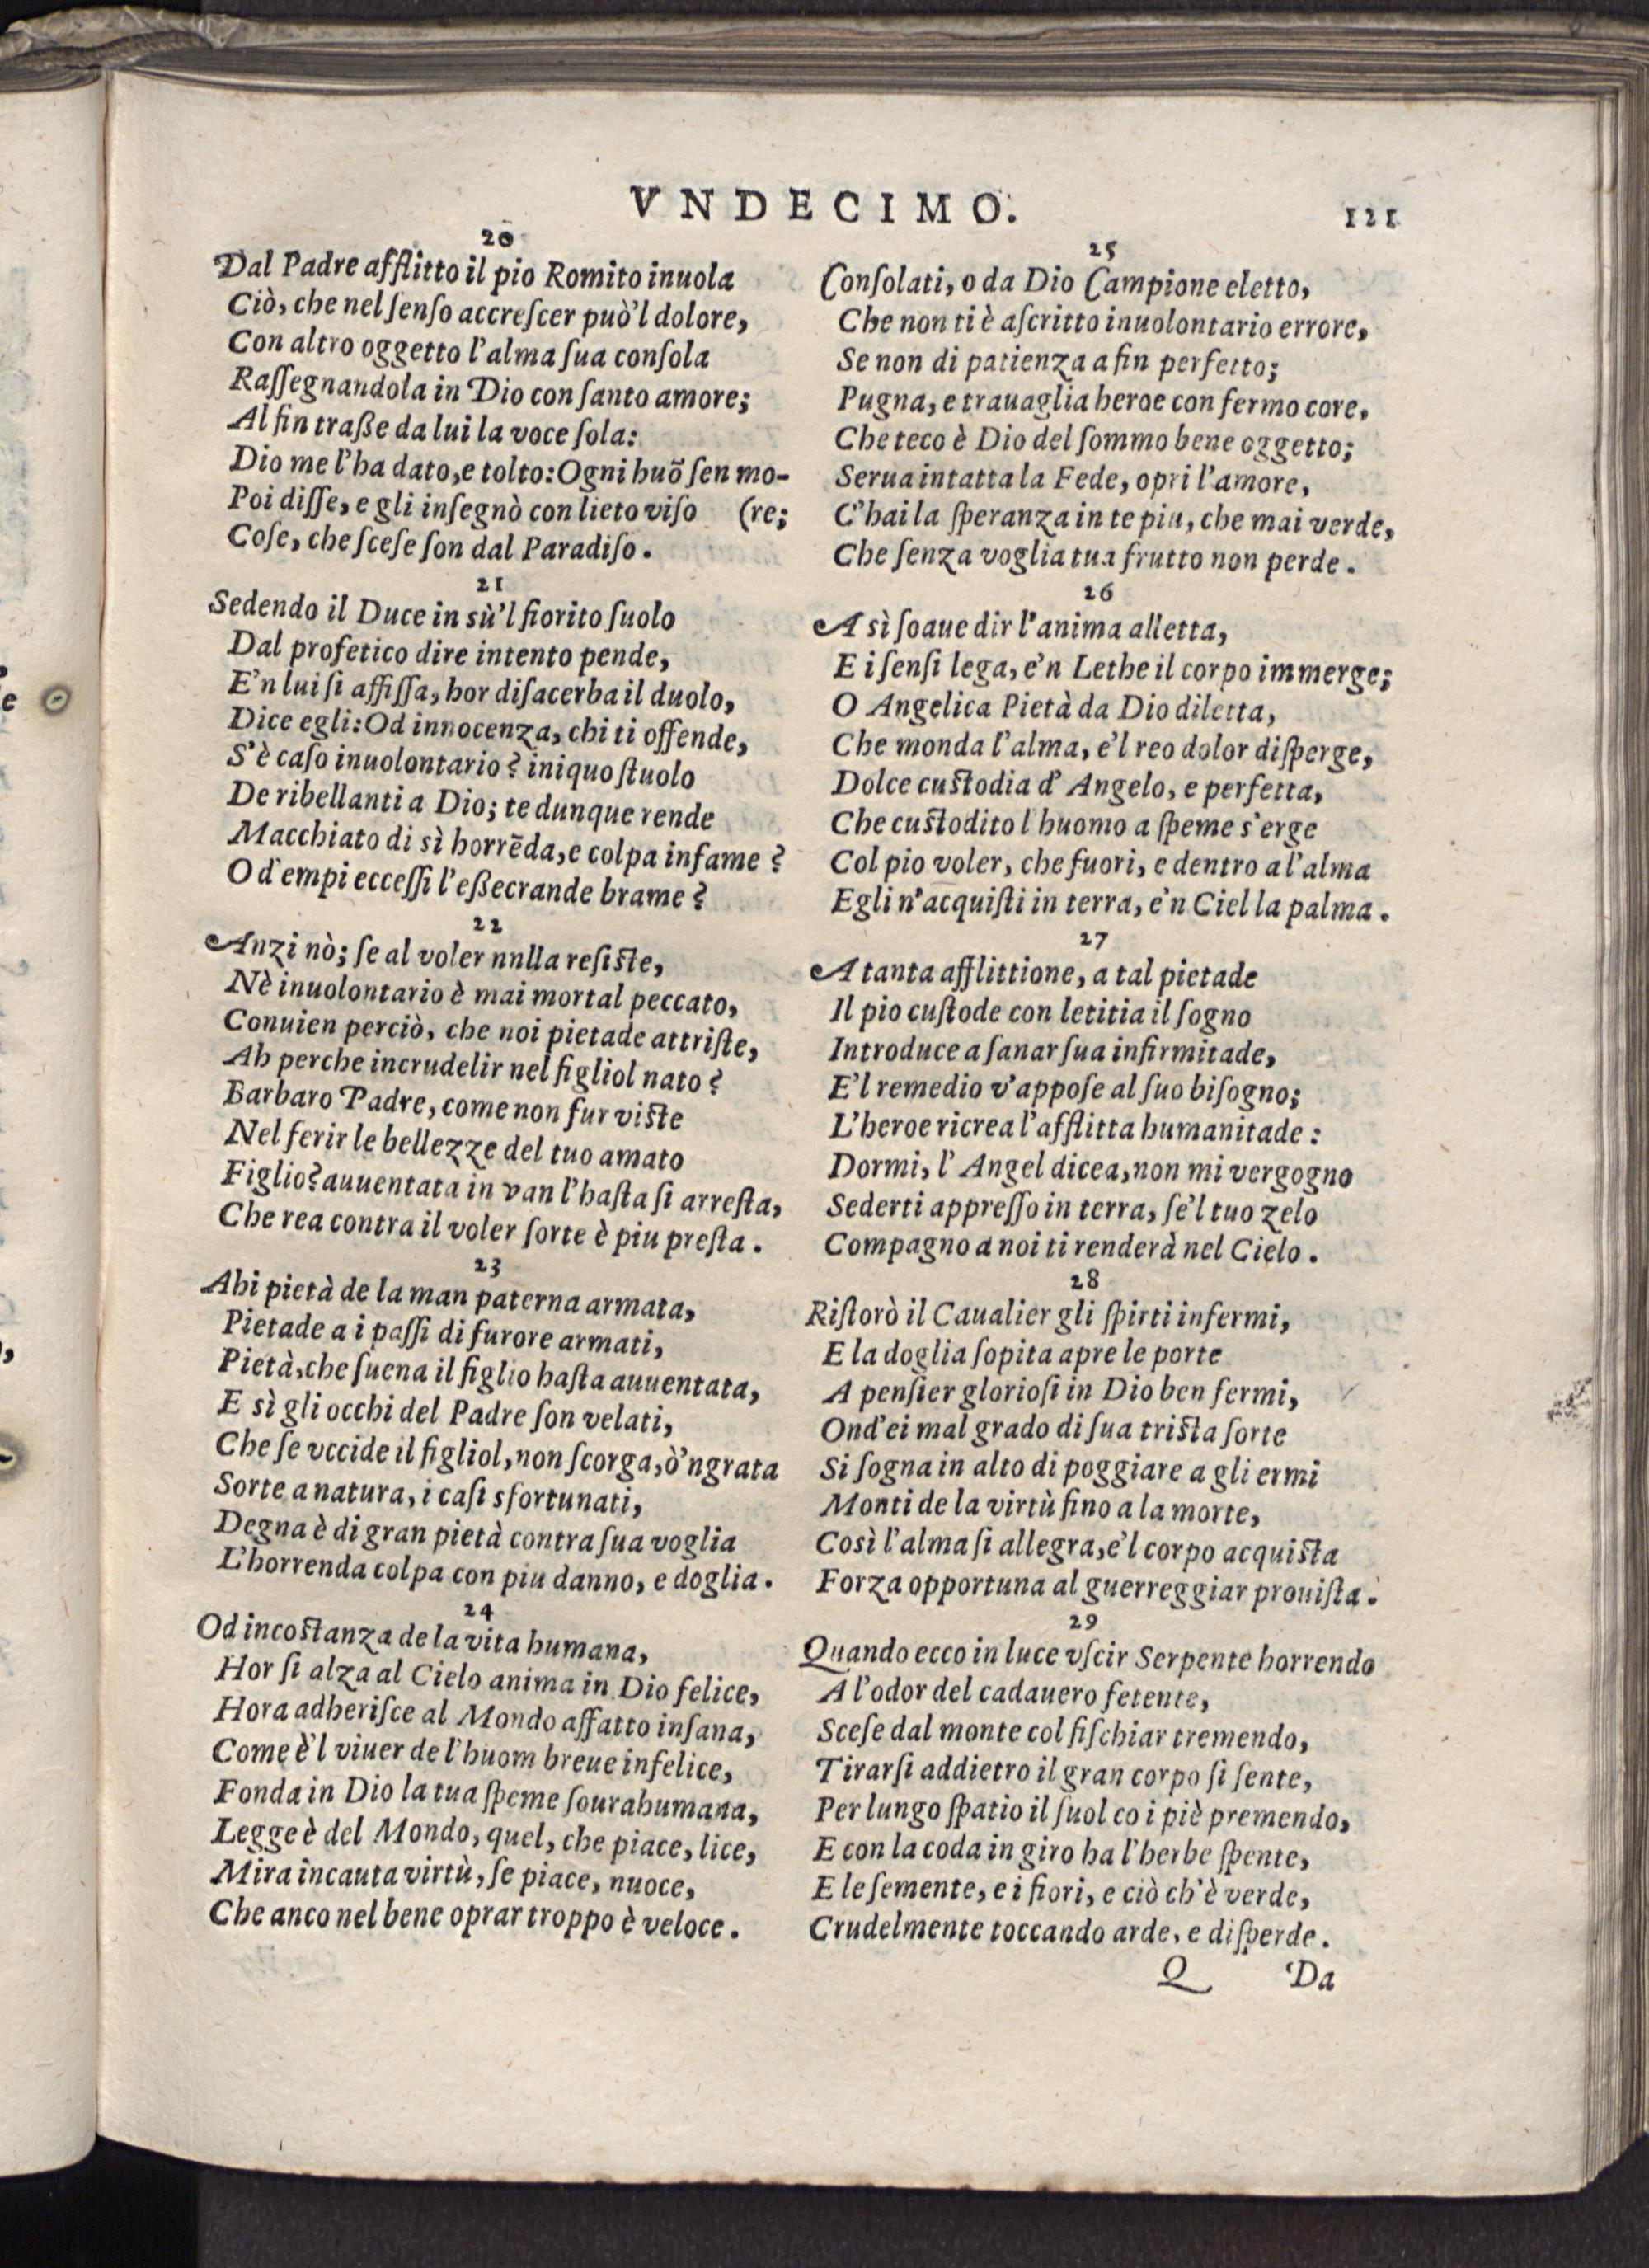 VNDECIMO.
121
20
Dal Padre afflitto il pio Romito inuola
Ciò, che nel ſenſo accreſcer può'l dolore,
Con altro oggetto l'alma ſua conſola
Raſſegnandola in Dio con ſanto amore;
Al fin traße da lui la voce ſola:
Dio me l'ha dato, e tolto: Ogni huõ ſen mo-
Poi diſſe, e gli inſegnò con lieto viſo (re;
Coſe, che ſceſe ſon dal Paradiſo.
21
Sedendo il Duce in sù'l fiorito ſuolo
Dal profetico dire intento pende,
E'n lui ſi affiſſa, hor diſacerba il duolo,
Dice egli: Od innocenza, chi ti offende,
S'è caſo inuolontario? iniquo ſtuolo
De ribellanti a Dio; te dunque rende
Macchiato di sì horrẽda, e colpa infame?
O d'empi ecceſſi l'eßecrande brame?
22
Anzi nò; ſe al voler nnlla reſiſte,
Nè inuolontario è mai mortal peccato,
Conuien perciò, che noi pietade attriſte,
Ah perche incrudelir nel figliol nato?
Barbaro Padre, come non fur viſte
Nel ferir le bellezze del tuo amato
Figlio? auuentata in van l'haſta ſi arreſta,
Che rea contra il voler ſorte è piu preſta.
23
Ahi pietà de la man paterna armata,
Pietade a i paſſi di furore armati,
Pietà, che ſuena il figlio haſta auuentata,
E sì gli occhi del Padre ſon velati,
Che ſe vccide il figliol, non ſcorga, ò'ngrata
Sorte a natura, i caſi sfortunati,
Degna è di gran pietà contra ſua voglia
L'horrenda colpa con piu danno, e doglia.
24
Od incoſtanza de la vita humana,
Hor ſi alza al Cielo anima in Dio felice,
Hora adheriſce al Mondo affatto inſana,
Come è'l viuer de l'huom breue infelice,
Fonda in Dio la tua ſpeme ſourahumana,
Legge è del Mondo, quel, che piace, lice,
Mira incauta virtù, ſe piace, nuoce,
Che anco nel bene oprar troppo è veloce.
25
Conſolati, o da Dio Campione eletto,
Che non ti è aſcritto inuolontario errore,
Se non di patienza a fin perfetto;
Pugna, e trauaglia heroe con fermo core,
Che teco è Dio del ſommo bene oggetto;
Serua intatta la Fede, opri l'amore,
C'hai la ſperanza in te piu, che mai verde,
Che ſenza voglia tua frutto non perde.
26
A sì ſoaue dir l'anima alletta,
E i ſenſi lega, e'n Lethe il corpo immerge;
O Angelica Pietà da Dio diletta,
Che monda l'alma, e'l reo dolor diſperge,
Dolce cuſtodia d'Angelo, e perfetta,
Che cuſtodito l'huomo a ſpeme s'erge
Col pio voler, che fuori, e dentro a l'alma
Egli n'acquiſti in terra, e'n Ciel la palma.
27
A tanta afflittione, a tal pietade
Il pio cuſtode con letitia il ſogno
Introduce a ſanar ſua infirmitade,
E'l remedio v'appoſe al ſuo biſogno;
L'heroe ricrea l'afflitta humanitade:
Dormi, l'Angel dicea, non mi vergogno
Sederti appreſſo in terra, ſe'l tuo zelo
Compagno a noi ti renderà nel Cielo.
28
Riſtorò il Caualier gli ſpirti infermi,
E la doglia ſopita apre le porte
A penſier glorioſi in Dio ben fermi,
Ond'ei mal grado di ſua triſta ſorte
Si ſogna in alto di poggiare a gli ermi
Monti de la virtù fino a la morte,
Così l'alma ſi allegra, e'l corpo acquiſta
Forza opportuna al guerreggiar prouiſta.
29
Quando ecco in luce vſcir Serpente horrendo
A l'odor del cadauero fetente,
Sceſe dal monte col fiſchiar tremendo,
Tirarſi addietro il gran corpo ſi ſente,
Per lungo ſpatio il ſuol co i piè premendo,
E con la coda in giro ha l'herbe ſpente,
E le ſemente, e i fiori, e ciò ch'è verde,
Crudelmente toccando arde, e diſperde.
Q Da